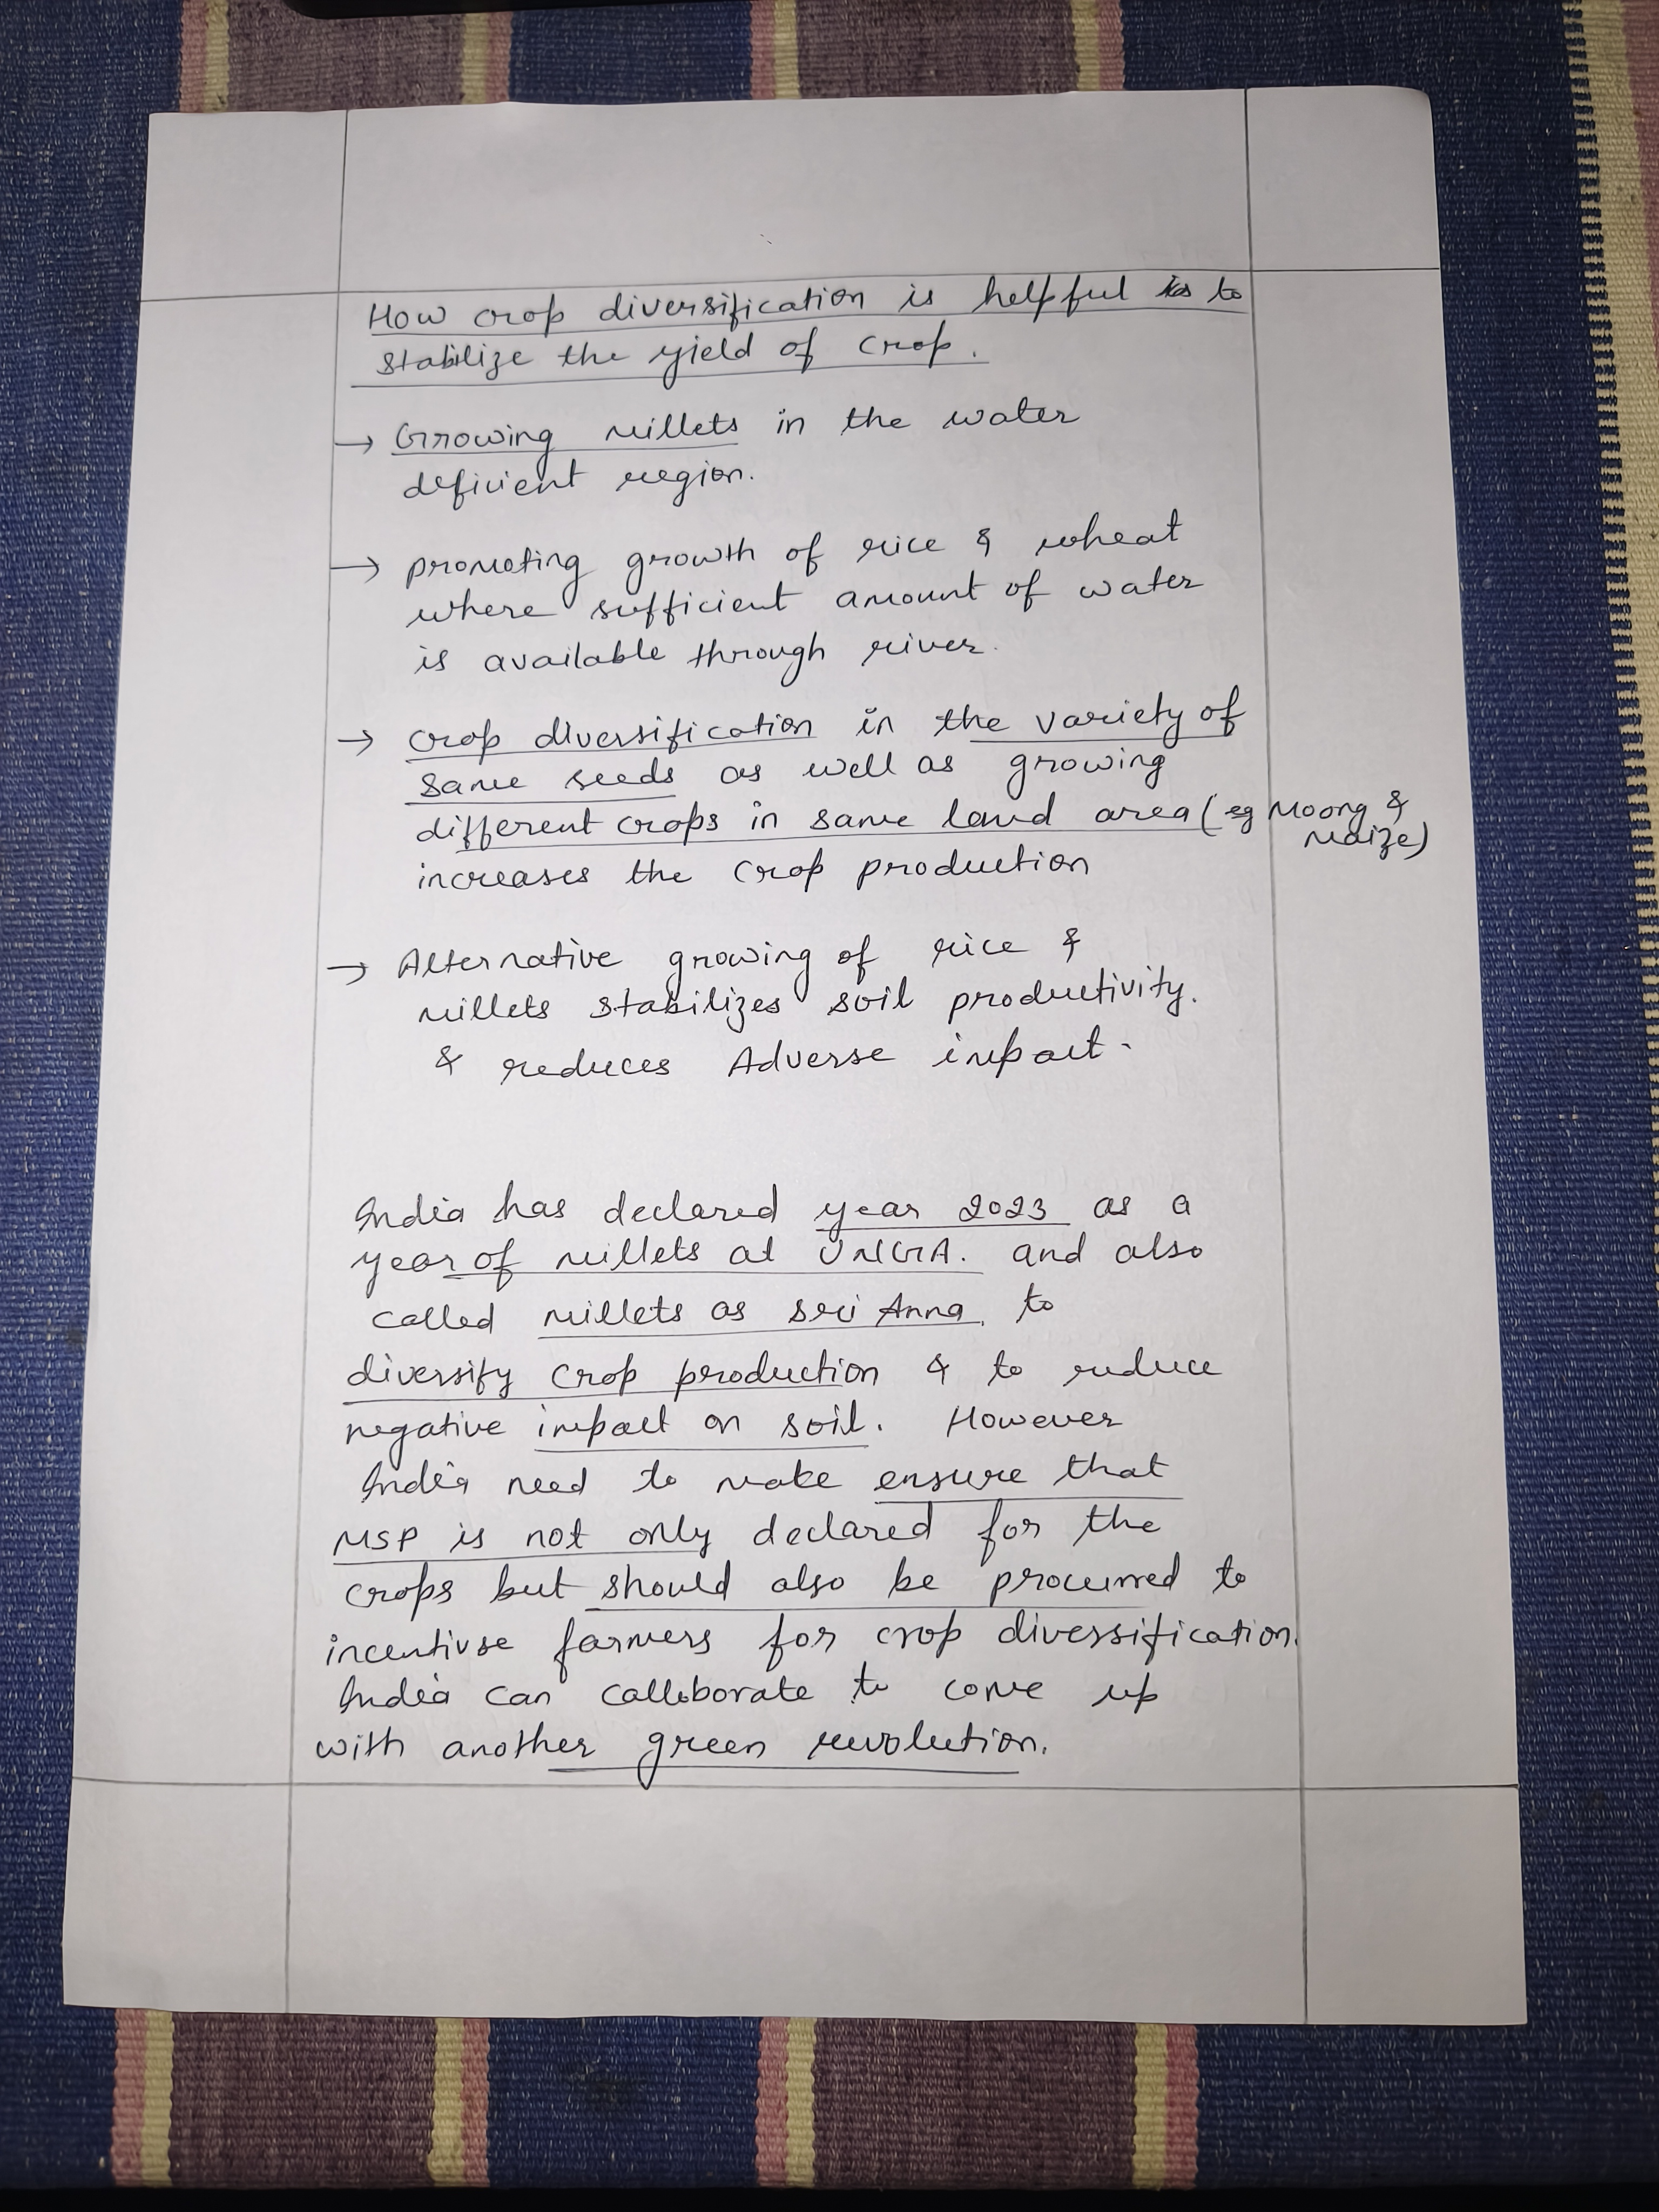 How crop diversification is helpful to
stabilize the yield of crop.
→ Growing millets in the water
deficient region.
→ promoting growth of rice & wheat
where sufficient amount of water
is available through river.
→ crop diversification in the variety of
same seeds as well as growing
different crops in same land area (eg Moong &
maize)
increases the crop production
→ Alternative growing of rice &
millets stabilizes soil productivity.
& reduces Adverse impact.
India has declared year 2023 as a
year of millets at UNGA. and also
called millets as sri Anna. to
diversify crop production & to reduce
negative impact on soil. However
India need to make ensure that
MSP is not only declared for the
crops but should also be procurred to
incentivse farmers for crop diversification.
India can calloborate to come up
with another green revolution.